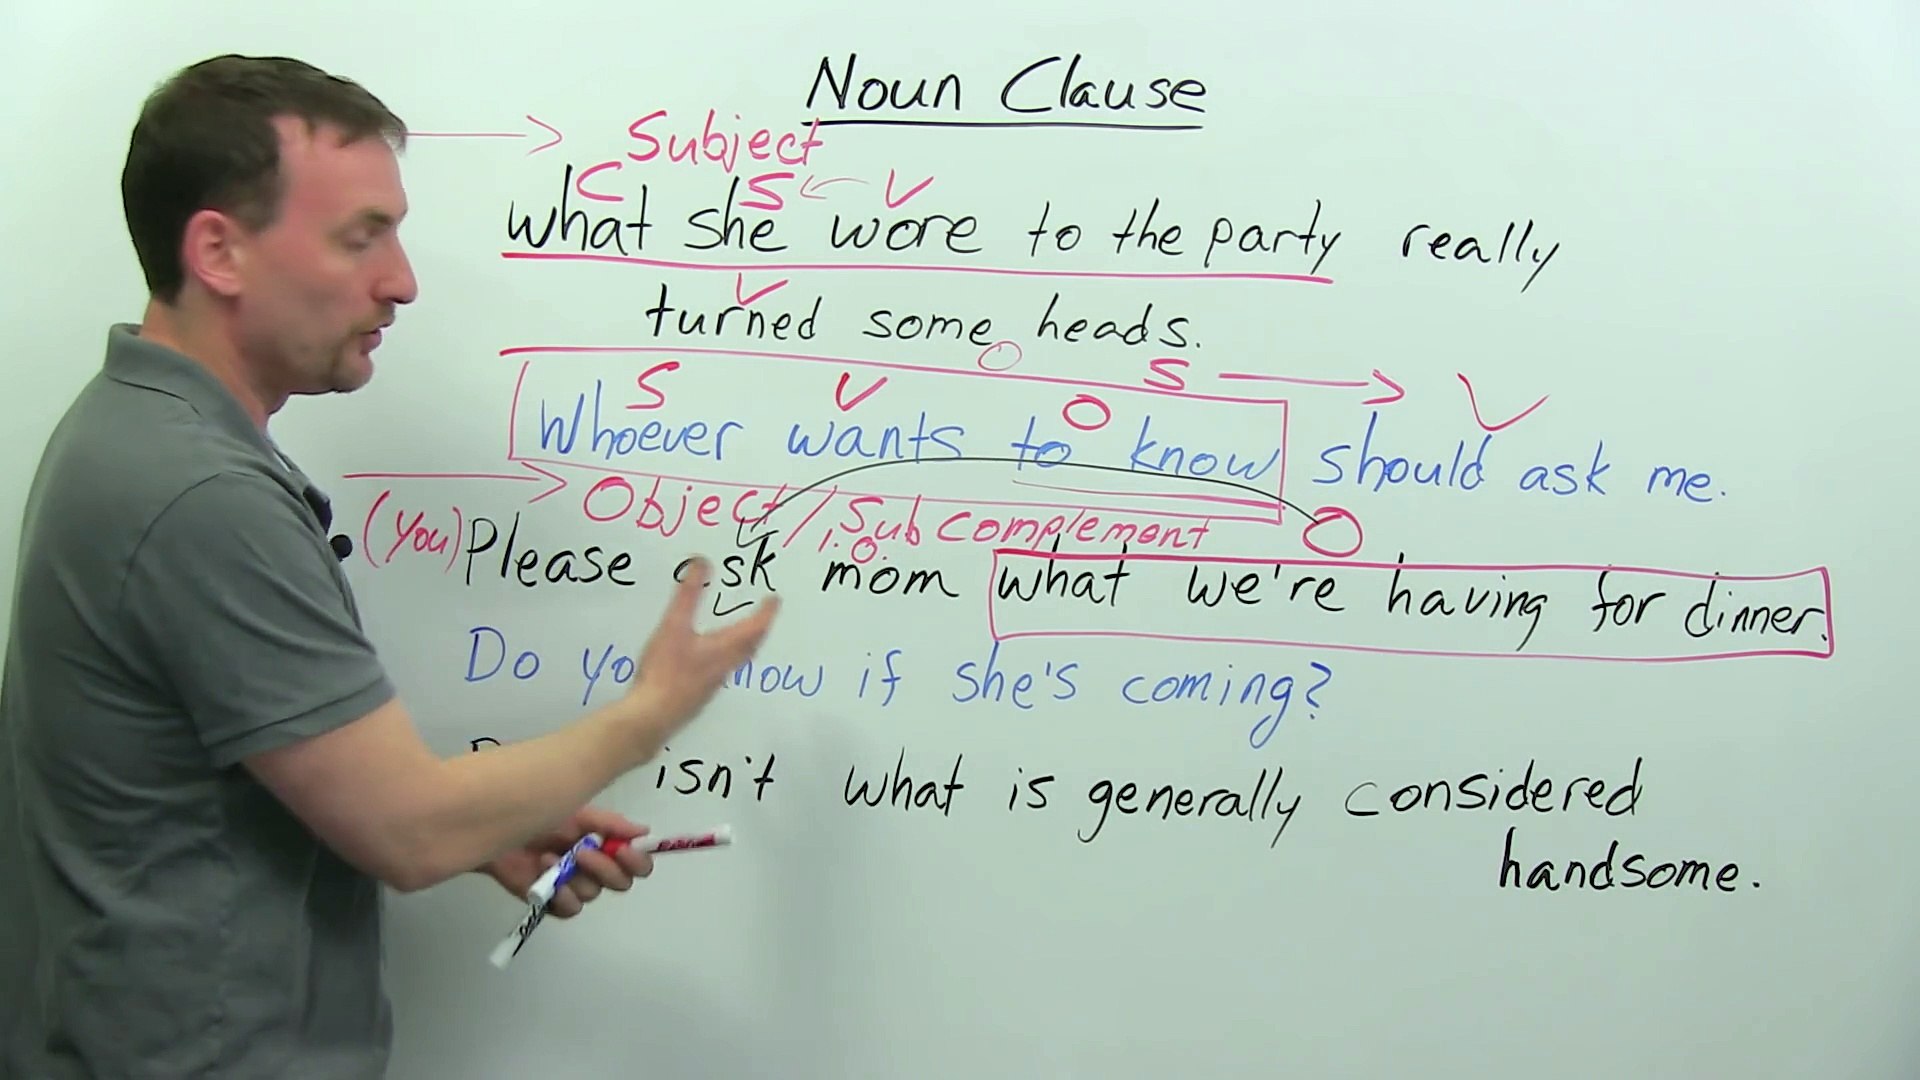 Noun Clause
Subject
C S V
what she wore to the party really
V
turned some heads.
O S
S V O V
Whoever wants to know should ask me.
Object / Sub complement
(You) Please ask mom what we're having for dinner.
V i.O. O
Do know if she's coming?
isn't what is generally considered
handsome.